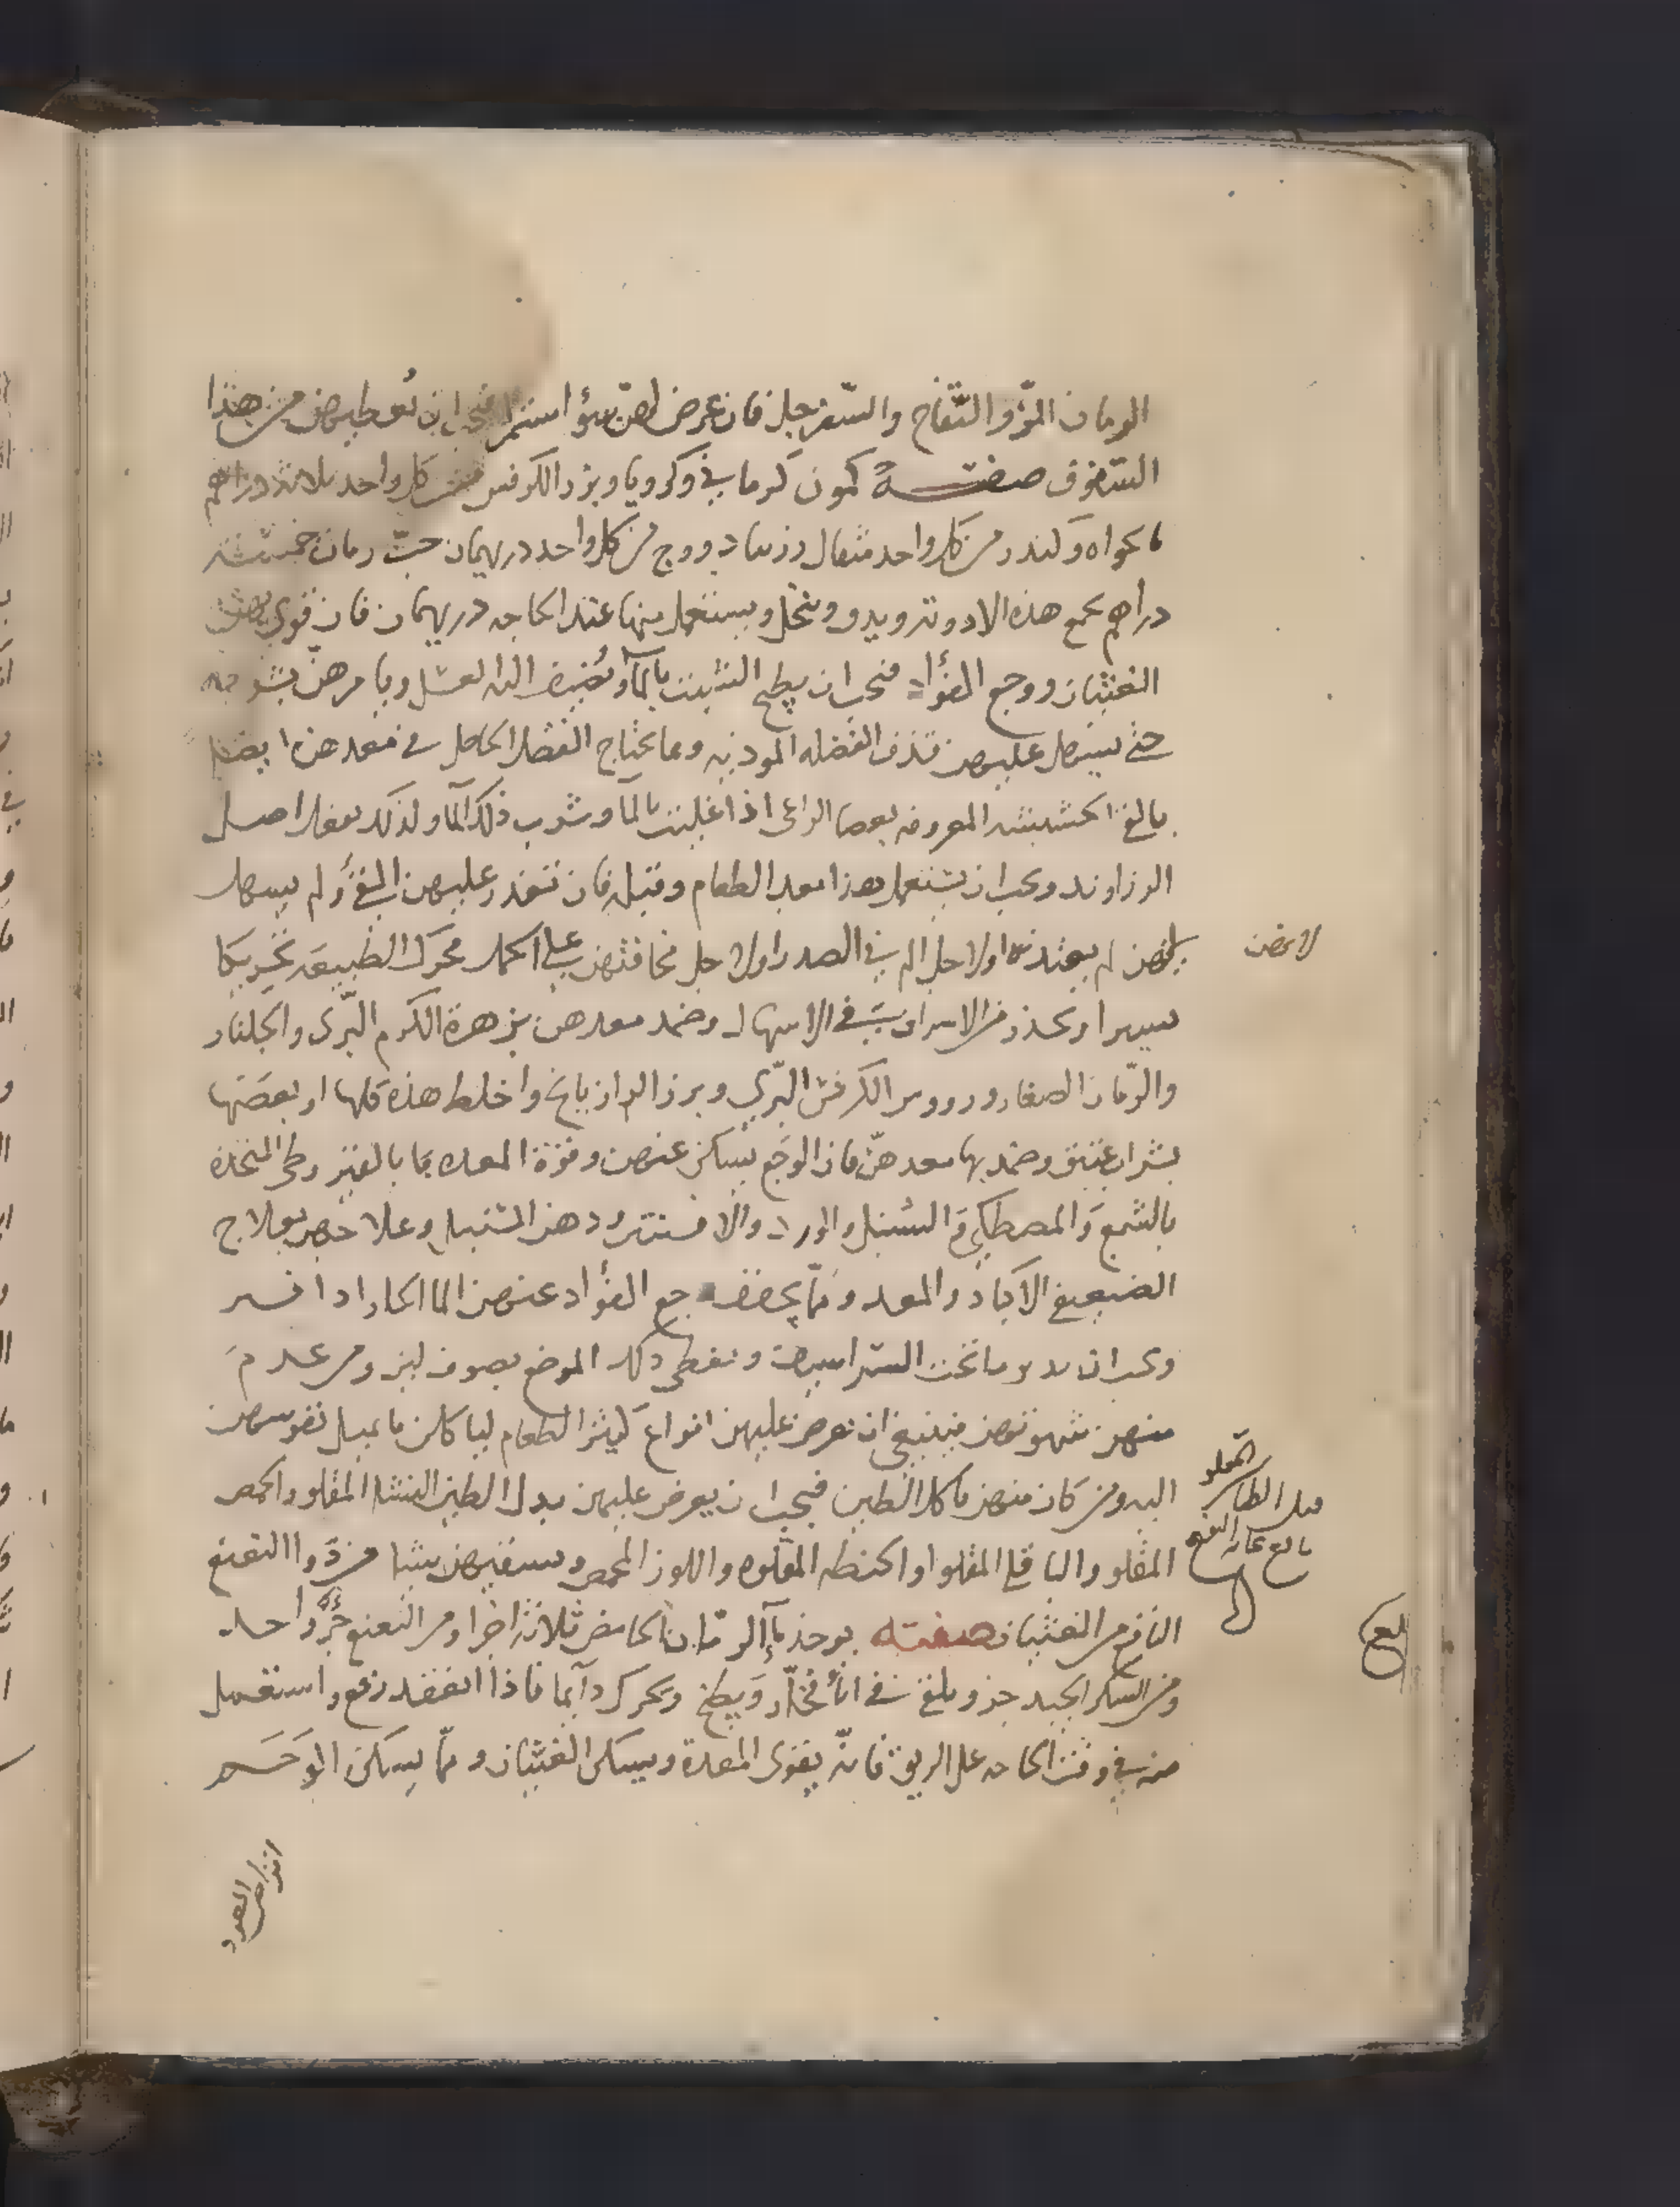 الرمان المزّ والتفّاح والسّفرجل فان عرض لهنّ سوٌ استمرا فيجب ان نُعطيهن من هذا
السّفوف صفتـــه كمون كرماني وكرويا وبزر الكرفس من كل واحد ثلاثة دراهم
نانخواه وكندر من كل واحد مثقال زرنباد ووج من كل واحد درهمان حبّ رمان خمسة
دراهم يجمع هذه الادوية ويدق وينخل ويستعمل منها عند الحاجه درهمان فان قوى بهن
الغثيان ووجع الفؤاد فيجب ان يطبخ الشبت بالمآ ويُضيف اليه العسل ويامرهنّ بشربه
حتى يسهل عليهن قذف الفضله الموذيه ومما يحتاج الفضل الحاصل في معدهن ايضا
بالغ الحشيشه المعروفه بعصا الراعى اذا غليت بالمآ وشرب ذلك المآ ولذلك يفعل اصل
الزراوند ويجب ان يستعمل هذا بعد الطعام وقبله فان تعذر عليهن القئ ولم يسهل
لهن لم يعتدنه او لاجل الم في الصدر او لاجل مخافتهن على الحمل فحرك الطبيعة تحريكا
يسيرا وتحذر من الاسراف في الاسهال وضمد معدهن بزهرة الكرم البّرى والجلنار
والرّمان الصغار ورووس الكرفس البّري وبرز الرازيانج واخلط هذه كلها او بعضها
بشراب عتيق وضمد بها معدهنّ فان الوجع يسكن عنهن وقوة المعده بما بالغير وطى المتخذه
بالشمع والمصطكي والسنبل والورد والافسنتين ودهن السنبل وعلاجهن بعلاج
الضعيف الاكباد والمعد وممّا يخفف وجع الفؤاد عنهن الما الحار اذا فتر
ويجب ان يدبر ما تحت الشراسيف وتغطى ذلك الموضع بصوف لين ومن عدم
منهن شهوتهن فينبغي ان نعرض عليهن انواع كثير الطعام لياكلن ما يميل نفوسهن
اليه ومن كان منهن ياكل الطين فيجب ان يعرض عليهن بدل الطين النشا المقلو والحمص
المقلو والباقلى المقلوا والحنطه المقلوه واللوز المحمص وسقيهن شيا من دّوا النعنع
النافع من الغثيان صفته يوخذ مآ الرمّان الحامض ثلاثة اجزا ومن النعنع جزٌ واحد
ومن السكر الجيد جزو يلقى في انآ فخّار ويطبخ ويحرك دآيما فاذا انعقد رفع واستعمل
منه في وقت الحاجه على الريق فانّه يقوى المعدة ويسكن الغثيان وممّا يسكن الوحـــم